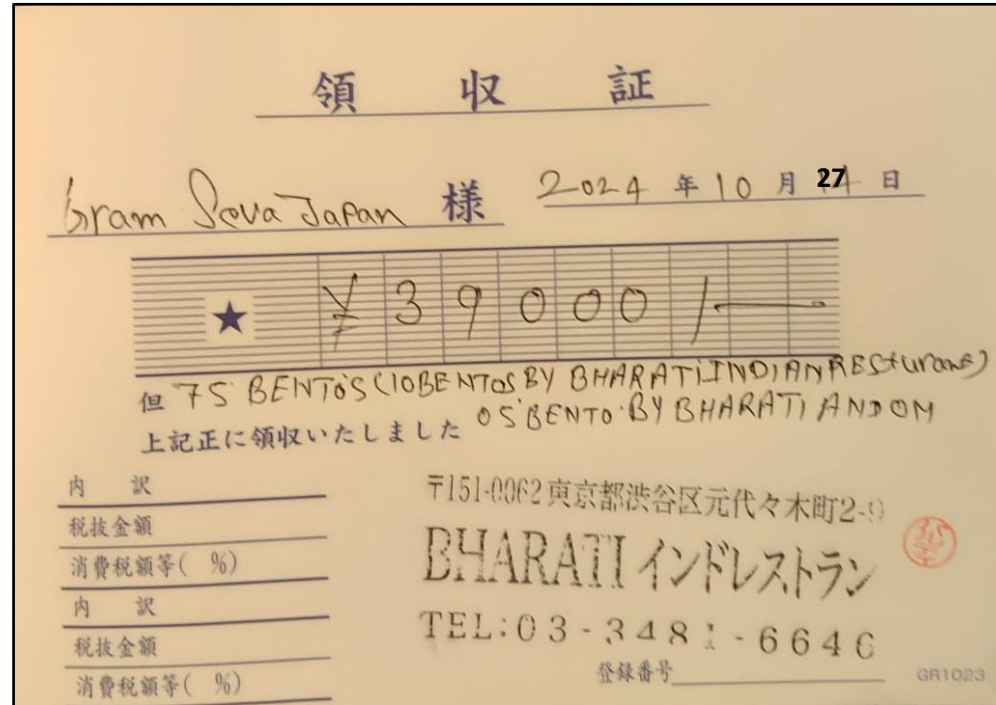 領 収 証
Gram Seva Japan 様 2024 年 10 月 27 日
★ ¥39000/-
但 75 BENTO'S (10 BENTOS BY BHARATI INDIAN RESturant)
05 BENTO BY BHARATI AND OM
上記正に領収いたしました
内 訳
税抜金額
消費税額等( %)
内 訳
税抜金額
消費税額等( %)
〒151-0062 東京都渋谷区元代々木町2-
BHARATI インドレストラン
TEL:03-3481-6646
登録番号
GR1023